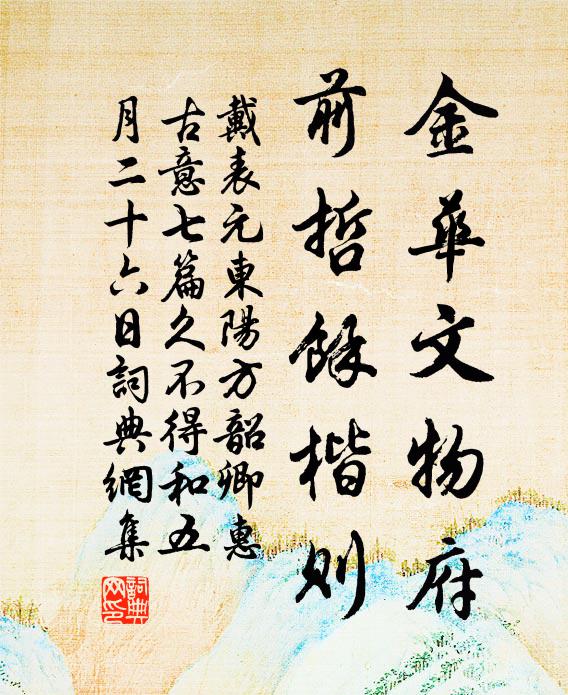 金華文物府
前哲餘楷則
戴表元東陽方韶卿惠
古意七篇久不得和五
月二十六日詞典網集
詞典
网印